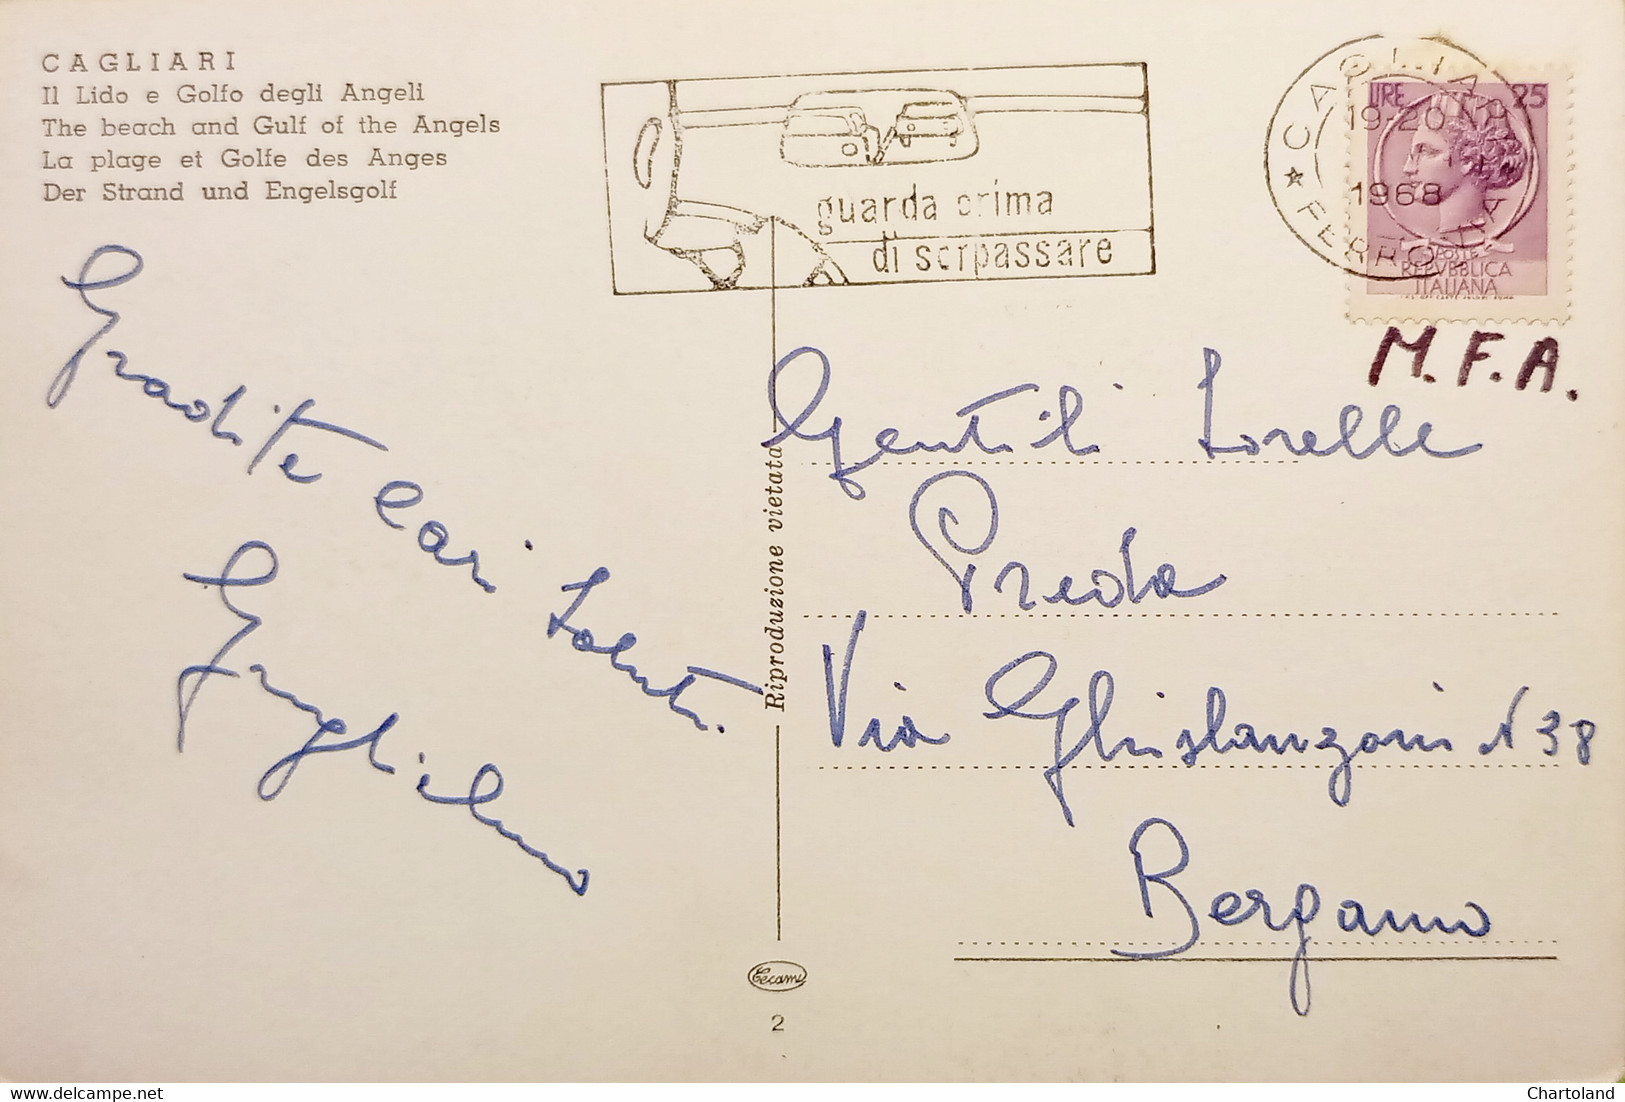 CAGLIARI
Il Lido e Golfo degli Angeli
The beach and Gulf of the Angels
La plage et Golfe des Anges
Der Strand und Engelsgolf
guarda prima
di sorpassare
CAGLIARI
FERROVIA
19-20
1968
LIRE 25
POSTE
REPVBBLICA
ITALIANA
M.F.A.
Gradite cari saluti.
Guglielmo
Riproduzione vietata
Gentili Sorelle
Preda
Via Ghislanzoni N 38
Bergamo
Cecami
2
www.delcampe.net
Chartoland